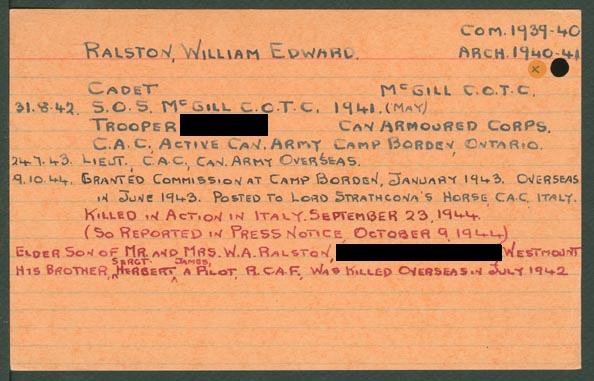 COM. 1939-40
RALSTON, WILLIAM EDWARD. ARCH. 1940-41
x
CADET MCGILL C.O.T.C.
31.8.42. S.O.S. MCGILL C.O.T.C. 1941. (MAY)
TROOPER CAN ARMOURED CORPS.
C.A.C, ACTIVE CAN. ARMY, CAMP BORDEN, ONTARIO.
24.7.43. LIEUT., C.A.C, CAN. ARMY OVERSEAS.
9.10.44. GRANTED COMMISSION AT CAMP BORDEN, JANUARY 1943. OVERSEAS
IN JUNE 1943. POSTED TO LORD STRATHCONA'S HORSE, C.A.C, ITALY.
KILLED IN ACTION IN ITALY. SEPTEMBER 23, 1944.
(SO REPORTED IN PRESS NOTICE, OCTOBER 9, 1944)
ELDER SON OF MR. AND MRS. W.A. RALSTON, WESTMOUNT
HIS BROTHER, SERGT. HERBERT JAMES, A PILOT, R.C.A.F., WAS KILLED OVERSEAS IN JULY 1942